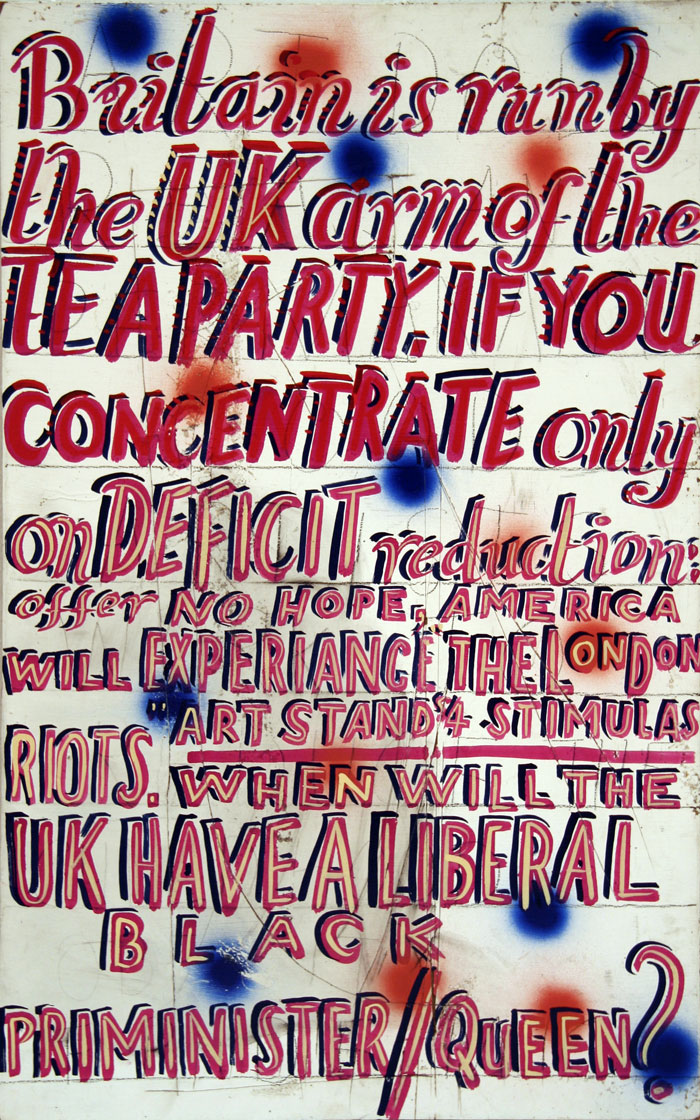 Britain is run by
the UK arm of the
TEA PARTY. IF YOU
CONCENTRATE only
on DEFICIT reduction:
offer NO HOPE, AMERICA
WILL EXPERIANCE THE LONDON
"ART STAND'S 4 STIMULAS
RIOTS. WHEN WILL THE
UK HAVE A LIBERAL
BLACK
PRIMINISTER/QUEEN?